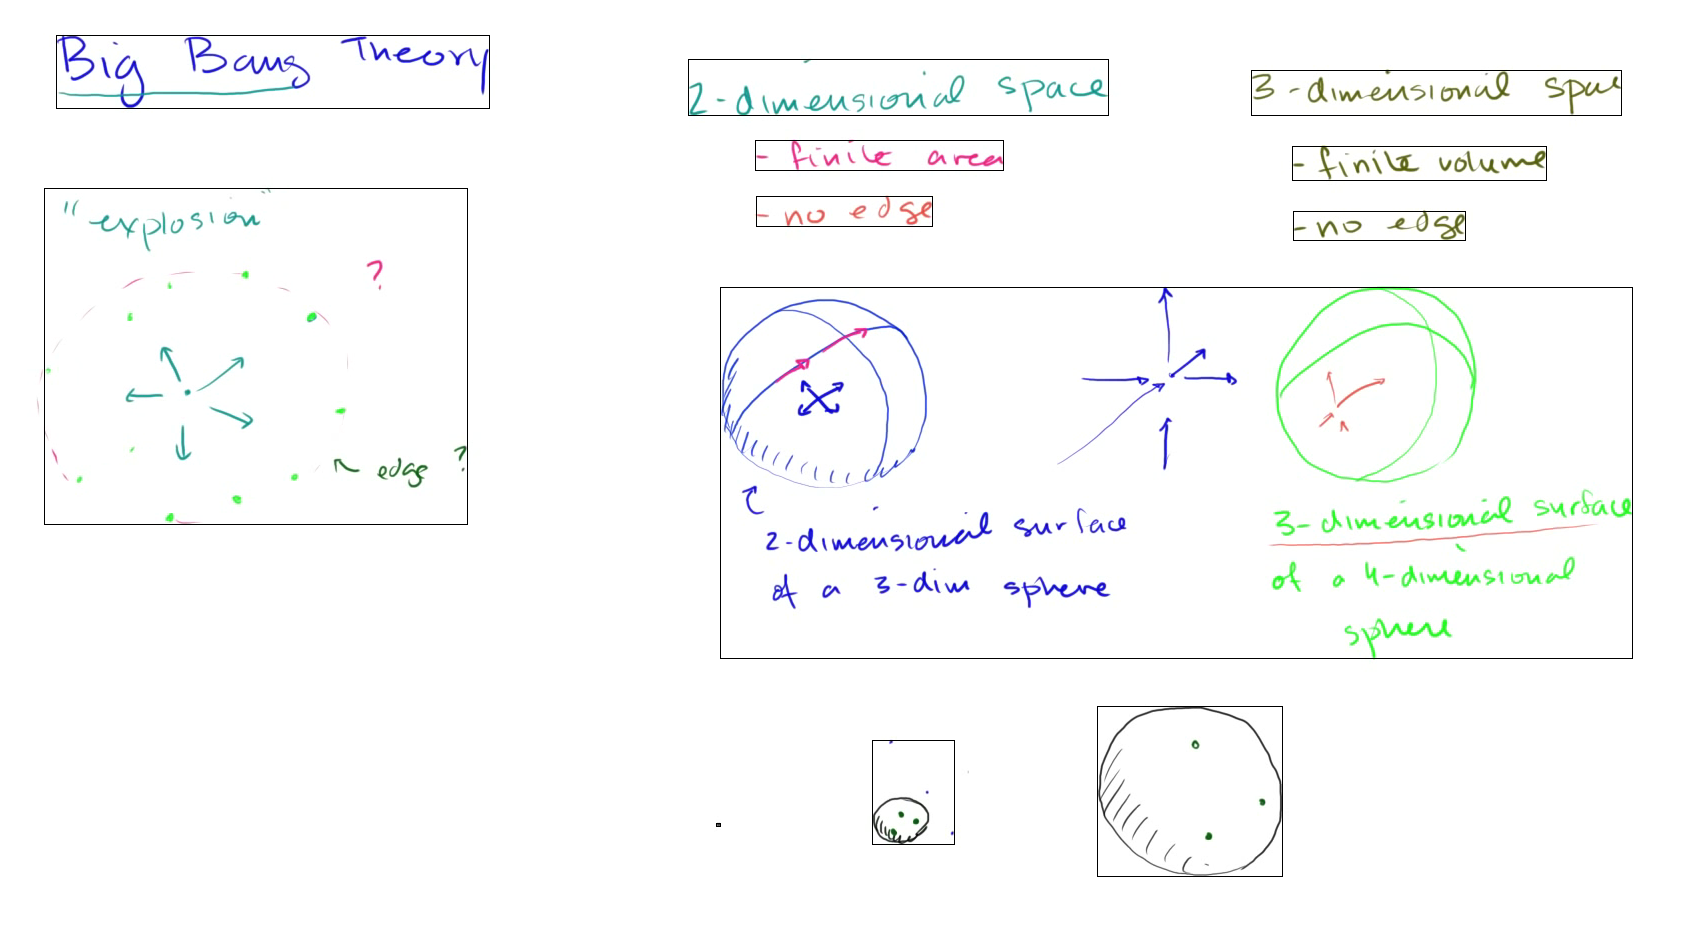 Big Bang Theory
2-dimensional space
- finite area
- no edge
3-dimensional space
- finite volume
- no edge
"explosion"
?
edge ?
2-dimensional surface
of a 3-dim sphere
3-dimensional surface
of a 4-dimensional
sphere